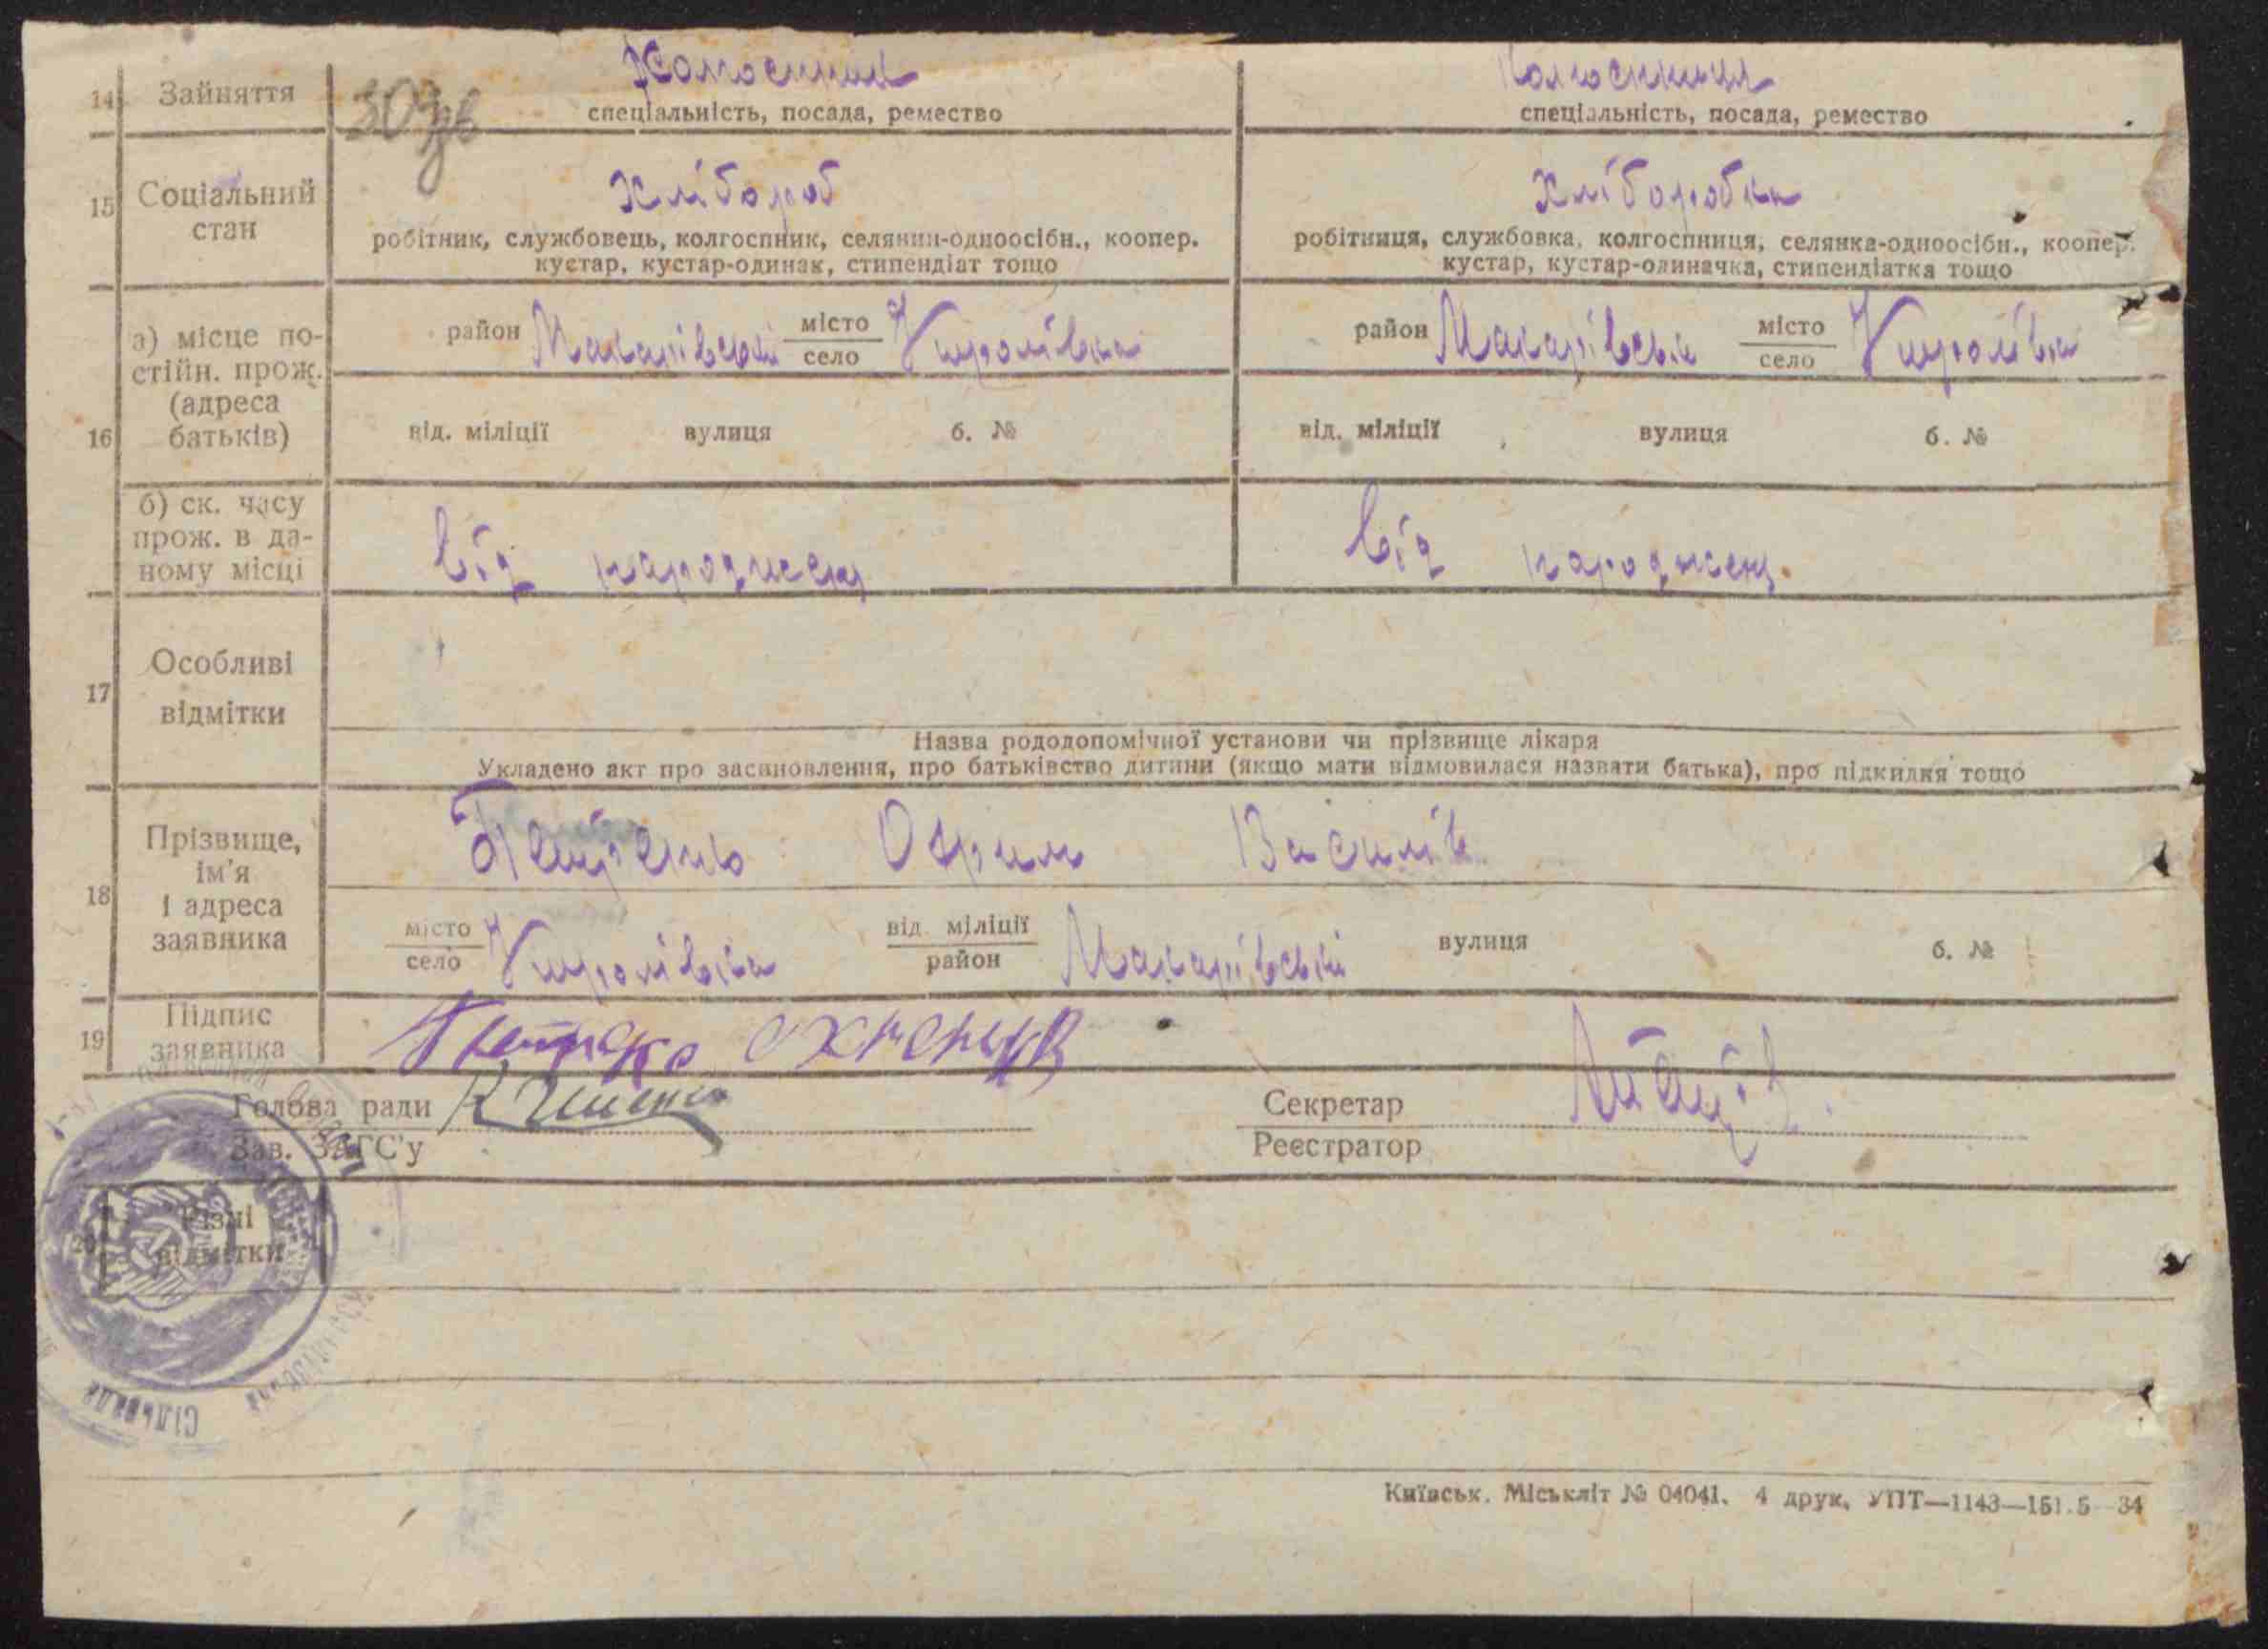 Колгоспник Колгоспниця
14 Зайняття спеціальність, посада, ремество спеціальність, посада, ремество
Хлібороб Хліборобка
15 Соціальний стан
робітник, службовець, колгоспник, селянин-одноосібн., коопер. робітниця, службовка, колгоспниця, селянка-одноосібн., коопер.
кустар, кустар-одинак, стипендіат тощо кустар, кустар-одиначка, стипендіатка тощо
16 а) місце по-
стійн. прож.
(адреса
батьків)
район Макарівськи місто село район Макарівськи місто село
від. міліції вулиця б. № від. міліції вулиця б. №
б) ск. часу
прож. в да-
ному місці
від народжен від народжен
17 Особливі
відмітки
Назва рододопомічної установи чи прізвище лікаря
Укладено акт про засиновлення, про батьківство дитини (якщо мати відмовилася назвати батька), про підкидня тощо
18 Прізвище,
ім'я
і адреса
заявника
Василів
місто село від. міліції район Макарівськи вулиця б. №
19 Підпис
заявника
Голова ради Секретар
Зав. ЗАГС'у Реєстратор
20 Різні
відмітки
Сільрада
Київськ. Міськліт № 04041. 4 друк. УПТ—1143—151.5—34